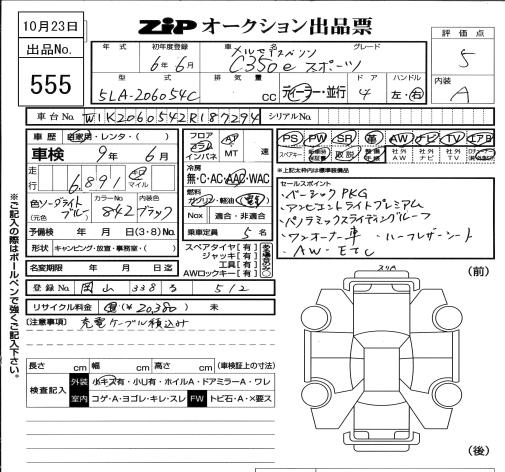 10月23日
ZiP オークション出品票
出品No.
555
評価点
5
内装
A
年式 初年度登録 車名 グレード
6年6月 メルセデスベンツ C350e スポーツ
型式 排気量 ドア ハンドル
5LA-206054C cc 元ディーラー・並行 4 左・右
車台No. W1K2060542R187294 シリアルNo.
車歴 自家用・レンタ・( )
車検 9年 6月
走行 6,891 km マイル
色 ソーダライトブルー カラーNo. 842 内装色 ブラック
(元色 )
予備検 年 月 日(3・8)No.
形状 キャンピング・放置・事務室・( )
名変期限 年 月 日迄
登録No. 岡山 338 る 512
リサイクル料金 済(¥20,380) 未
フロア コラム インパネ AT MT 速
冷房 無・C・AC・AAC・WAC
燃料 ガソリン・軽油・(電気)
Nox 適合・非適合
乗車定員 5名
スペアタイヤ[有]
ジャッキ[有]
工具[有]
AWロックキー[有]
PS PW SR 革 AW ナビ TV エアB
スペアキー 新車時保証書 取説 整備手帳 社外AW 社外ナビ 社外TV
※上記太枠内は標準装備品
セールスポイント
・ベーシックPKG
・アンビエントライトプレミアム
・パノラミックスライディングルーフ
・ワンオーナー車 ・ハーフレザーシート
・AW・ETC
[注意事項] 充電ケーブル積込み
長さ cm 幅 cm 高さ cm (車検証上の寸法)
検査記入
外装 小キズ有・小凹有・ホイルA・ドアミラーA・ワレ
室内 コゲA・ヨゴレ・キレ・スレ FW トビ石・A・×要ス
スリA
(前)
(後)
※ご記入の際はボールペンで強くご記入下さい。